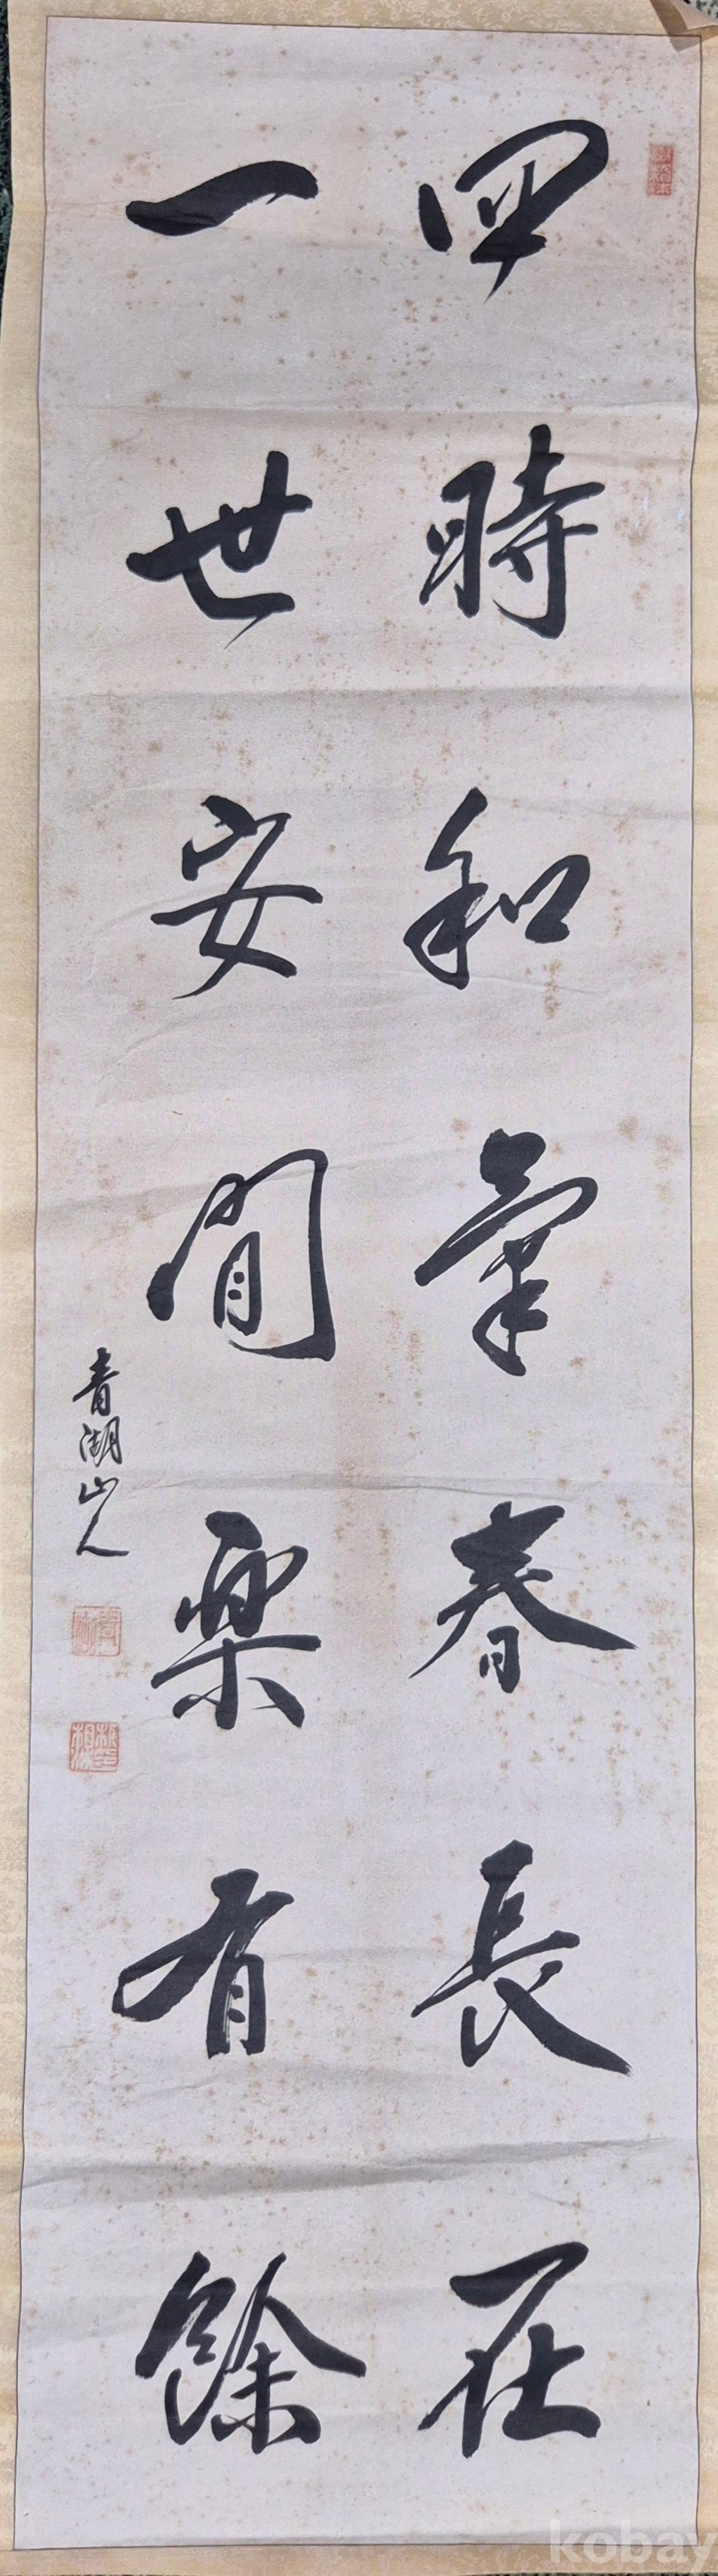 四時和氣春長在
一世安閒樂有餘
青湖山人
kobay